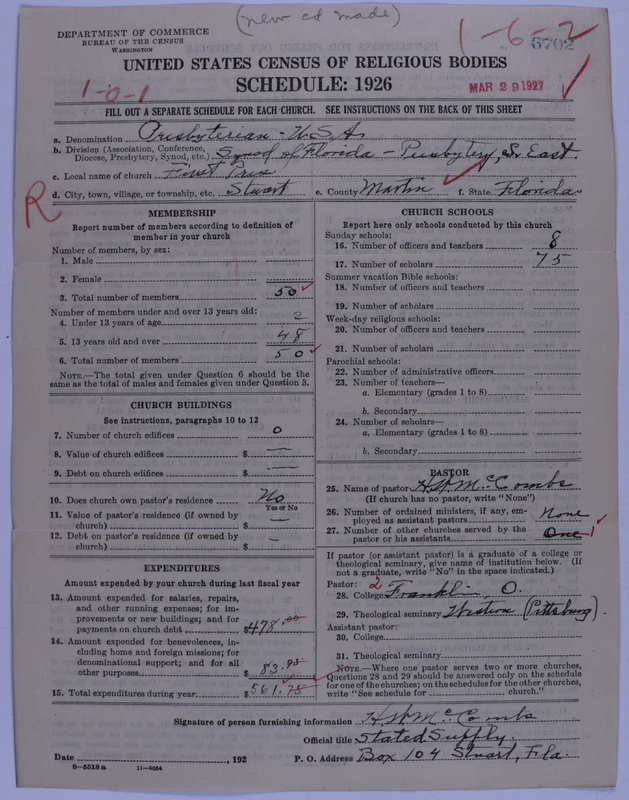 (new cd made)
DEPARTMENT OF COMMERCE
BUREAU OF THE CENSUS
WASHINGTON
1-6-2
6702
UNITED STATES CENSUS OF RELIGIOUS BODIES
SCHEDULE: 1926
MAR 29 1927
1-0-1
FILL OUT A SEPARATE SCHEDULE FOR EACH CHURCH. SEE INSTRUCTIONS ON THE BACK OF THIS SHEET
a. Denomination Presbyterian - U.S.A.
b. Division (Association, Conference, Diocese, Presbytery, Synod, etc.) Synod of Florida - Presbytery, S. East.
c. Local name of church First Pres
d. City, town, village, or township, etc. Stuart e. County Martin f. State Florida
R
MEMBERSHIP
Report number of members according to definition of
member in your church
Number of members, by sex:
1. Male
2. Female
3. Total number of members 50
Number of members under and over 13 years old:
4. Under 13 years of age 2
5. 13 years old and over 48
6. Total number of members 50
NOTE.—The total given under Question 6 should be
same as the total of males and females given under Question 3.
CHURCH BUILDINGS
See instructions, paragraphs 10 to 12
7. Number of church edifices 0
8. Value of church edifices $ —
9. Debt on church edifices $ —
10. Does church own pastor's residence No
Yes or No
11. Value of pastor's residence (if owned by
church) $ —
12. Debt on pastor's residence (if owned by
church) $ —
EXPENDITURES
Amount expended by your church during last fiscal year
13. Amount expended for salaries, repairs,
and other running expenses; for im-
provements or new buildings; and for
payments on church debt $478.00
14. Amount expended for benevolences, in-
cluding home and foreign missions; for
denominational support; and for all
other purposes $ 83.75
15. Total expenditures during year $ 561.75
CHURCH SCHOOLS
Report here only schools conducted by this church
Sunday schools:
16. Number of officers and teachers 8
17. Number of scholars 75
Summer vacation Bible schools:
18. Number of officers and teachers
19. Number of scholars
Week-day religious schools:
20. Number of officers and teachers
21. Number of scholars
Parochial schools:
22. Number of administrative officers
23. Number of teachers—
a. Elementary (grades 1 to 8)
b. Secondary
24. Number of scholars—
a. Elementary (grades 1 to 8)
b. Secondary
PASTOR
25. Name of pastor H.H. McCombs
(If church has no pastor, write "None")
26. Number of ordained ministers, if any, em-
ployed as assistant pastors None
27. Number of other churches served by the
pastor or his assistants One 1
If pastor (or assistant pastor) is a graduate of a college or
theological seminary, give name of institution below. (If
not a graduate, write "No" in the space indicated.)
Pastor: 2
28. College Franklin, O.
29. Theological seminary Western (Pittsburg).
Assistant pastor:
30. College
31. Theological seminary
NOTE.—Where one pastor serves two or more churches,
Questions 28 and 29 should be answered only on the schedule
for one of the churches; on the schedules for the other churches,
write "See schedule for ____ church."
Signature of person furnishing information H.H. McCombs
Official title Stated Supply.
Date ____, 192 P. O. Address Box 104 Stuart, Fla.
8—5518a 11—9054